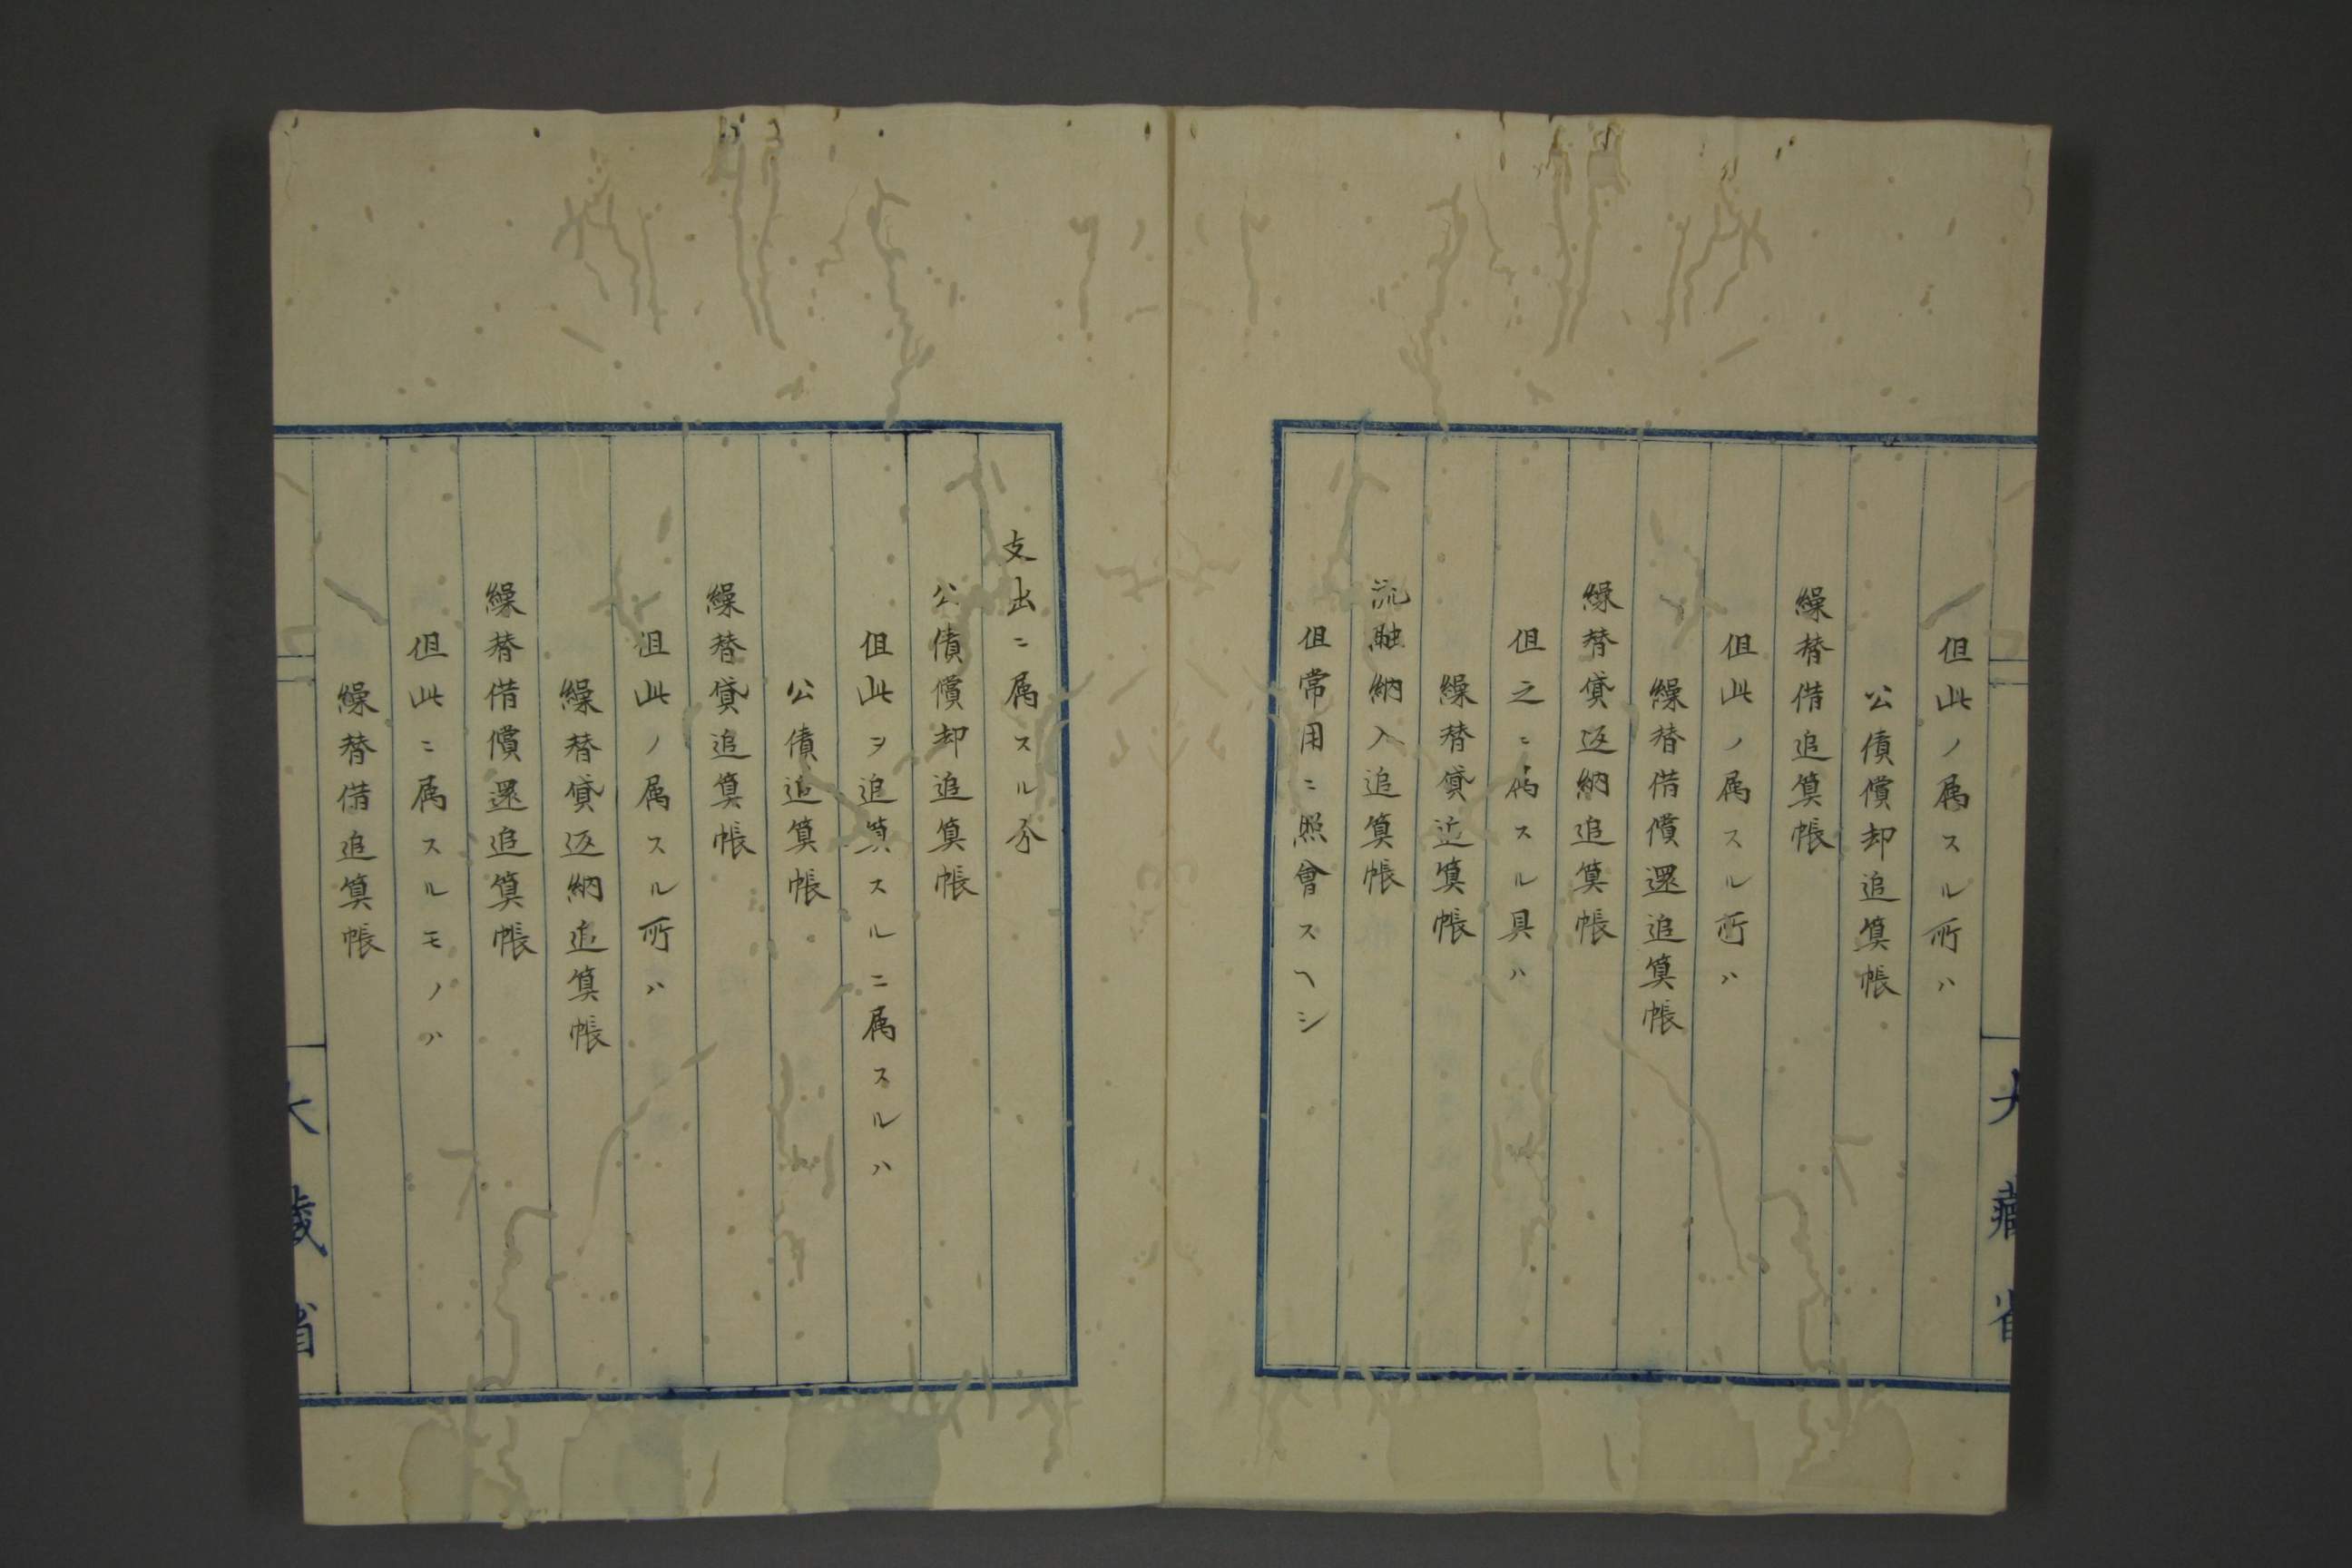 但此ノ属スル所ハ
公債償却追算帳
繰替借追算帳
但此ノ属スル所ハ
繰替借償還追算帳
繰替貸返納追算帳
但之ニ属スル具ハ
繰替貸追算帳
流融納入追算帳
但常用ニ照會スヘシ
大藏省
支出ニ属スル分
公債償却追算帳
但此ヲ追算スルニ属スルハ
公債追算帳
繰替貸追算帳
但此ノ属スル所ハ
繰替貸返納追算帳
繰替借償還追算帳
但此ニ属スルモノハ
繰替借追算帳
大藏省